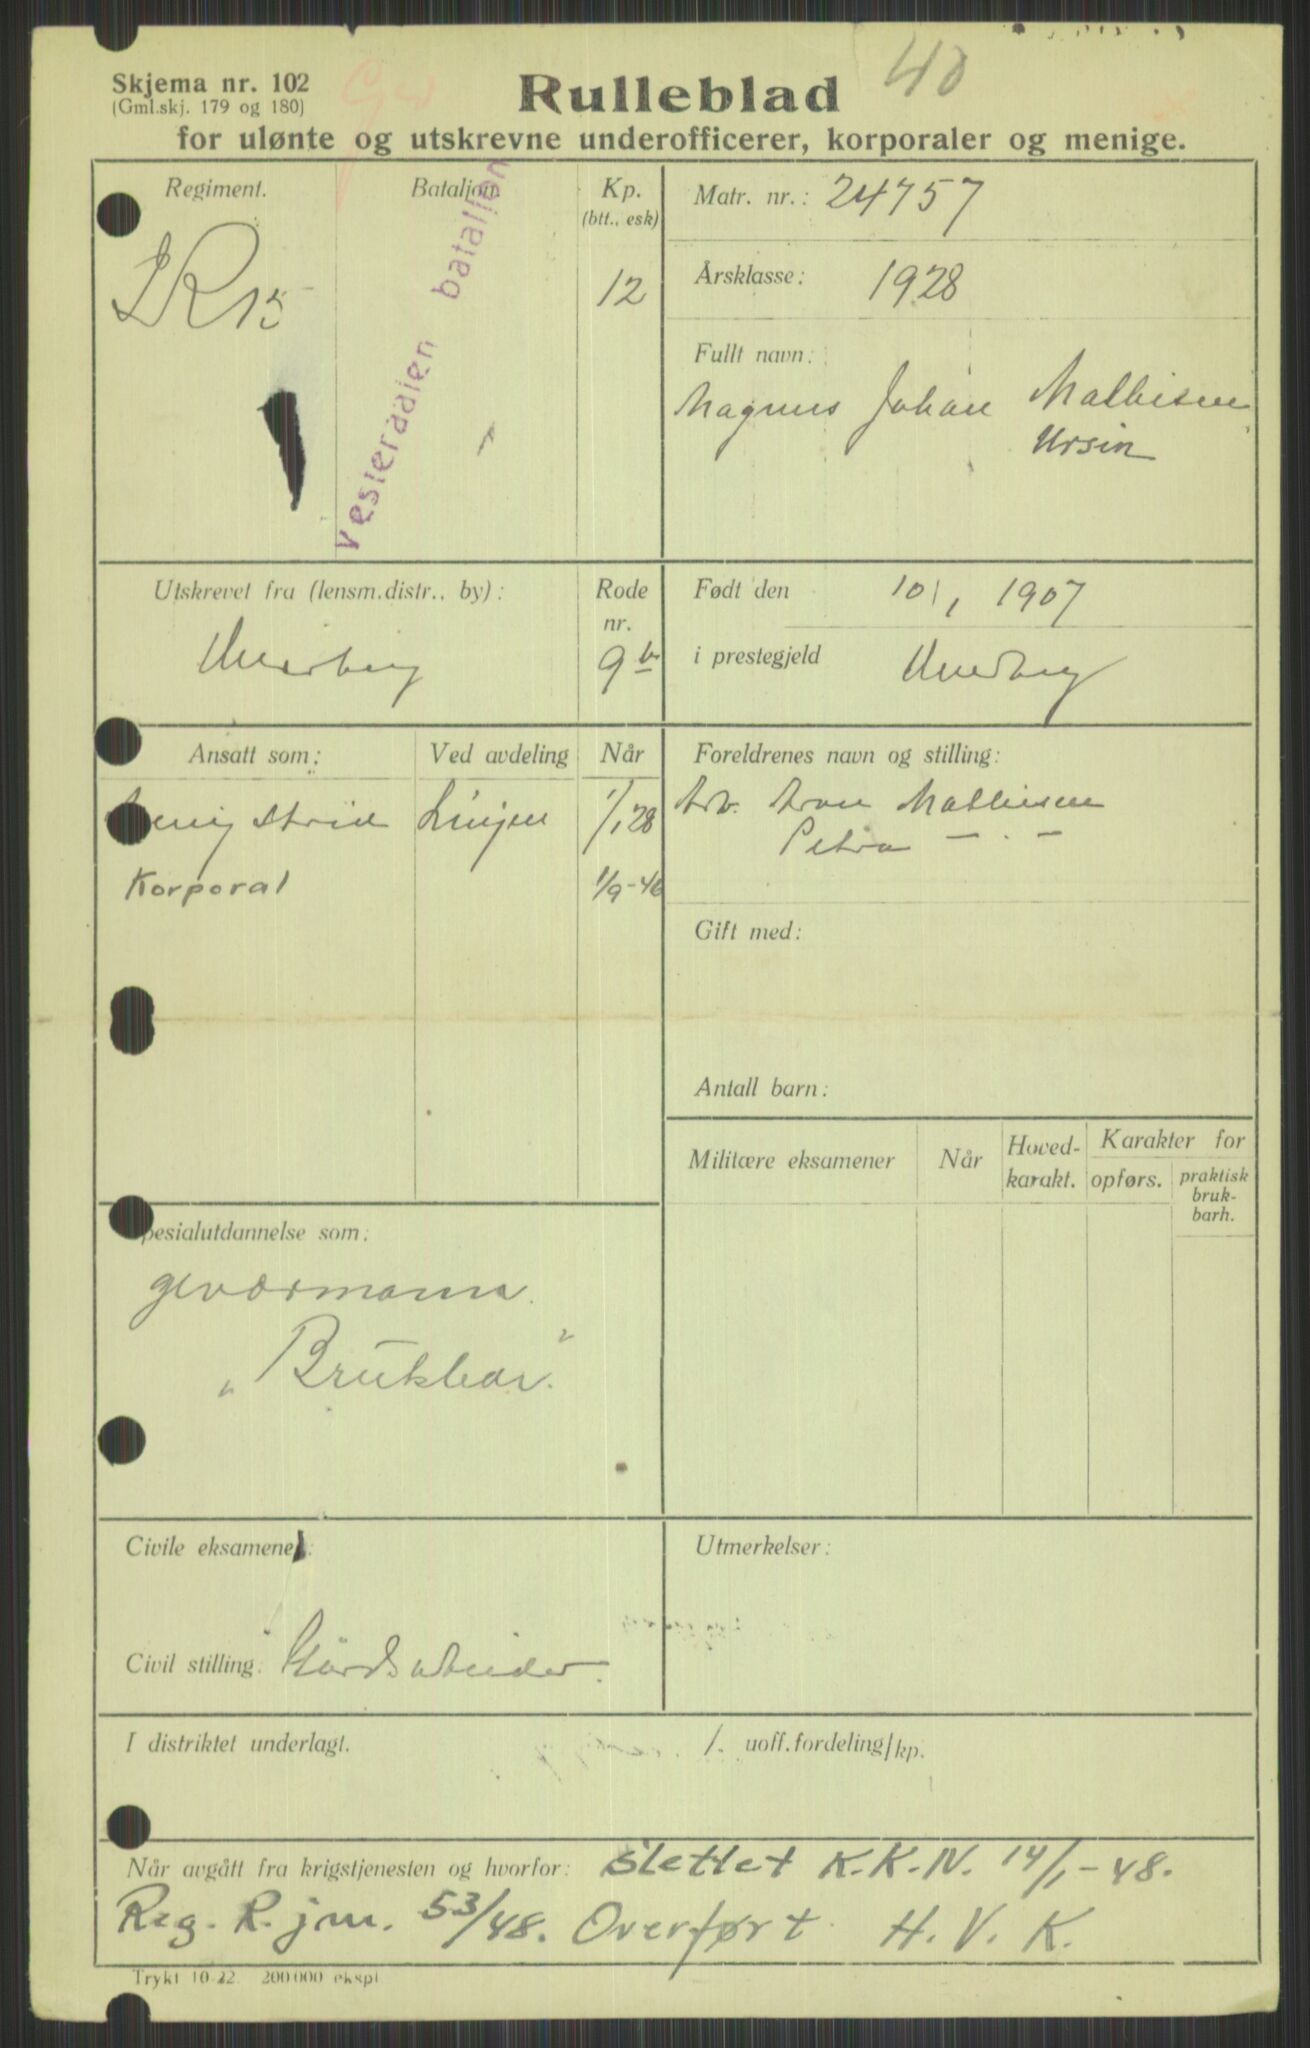 40
Skjema nr. 102
(Gml.skj. 179 og 180)
Rulleblad
for ulønte og utskrevne underofficerer, korporaler og menige.
Regiment.
IR 15
Bataljon.
Vesteraalen bataljon
Kp.
(btt., esk)
12
Matr. nr.: 24757
Årsklasse: 1928
Fullt navn:
Magnus Johan Mathisen
Ursin
Utskrevet fra (lensm.distr., by):
Rode
nr.
9 b
Født den 10/1 1907
i prestegjeld
Ansatt som:
Ved avdeling
Når
Menig strid Linjen 1/1 28
Korporal 1/9-46
Foreldrenes navn og stilling:
Arb. Aron Mathisen
Petra — " —
Gift med:
Antall barn:
Militære eksamener
Når
Hoved-
karakt.
Karakter for
opførs.
praktisk
bruk-
barh.
Spesialutdannelse som:
geværmann.
„Brukbar."
Civile eksamener:
Civil stilling: Gårdsarbeider.
Utmerkelser:
I distriktet underlagt. /. uoff.fordeling/kp.
Når avgått fra krigstjenesten og hvorfor: Slettet K.K.N. 14/1-48.
Reg. R. jm. 53/48. Overført H.V.K.
Trykt 10-22. 200000 ekspl